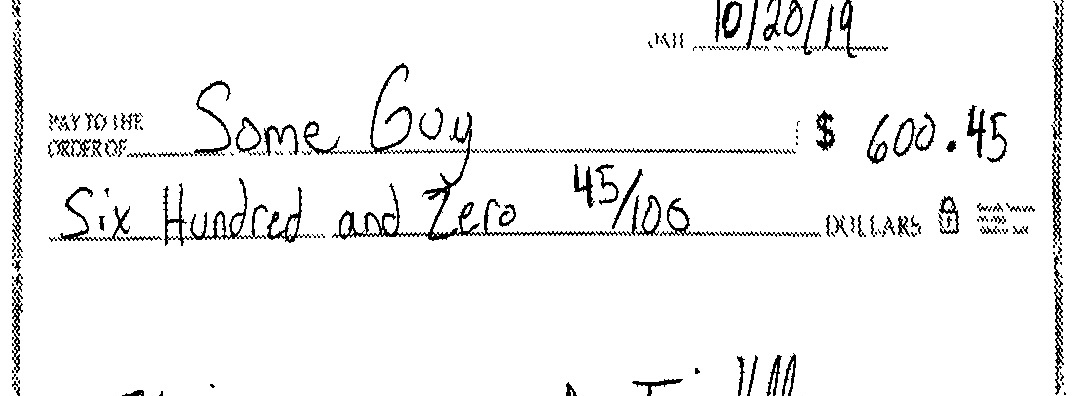 DATE 10/20/19
PAY TO THE ORDER OF Some Guy $ 600.45
Six Hundred and Zero 45/100 DOLLARS